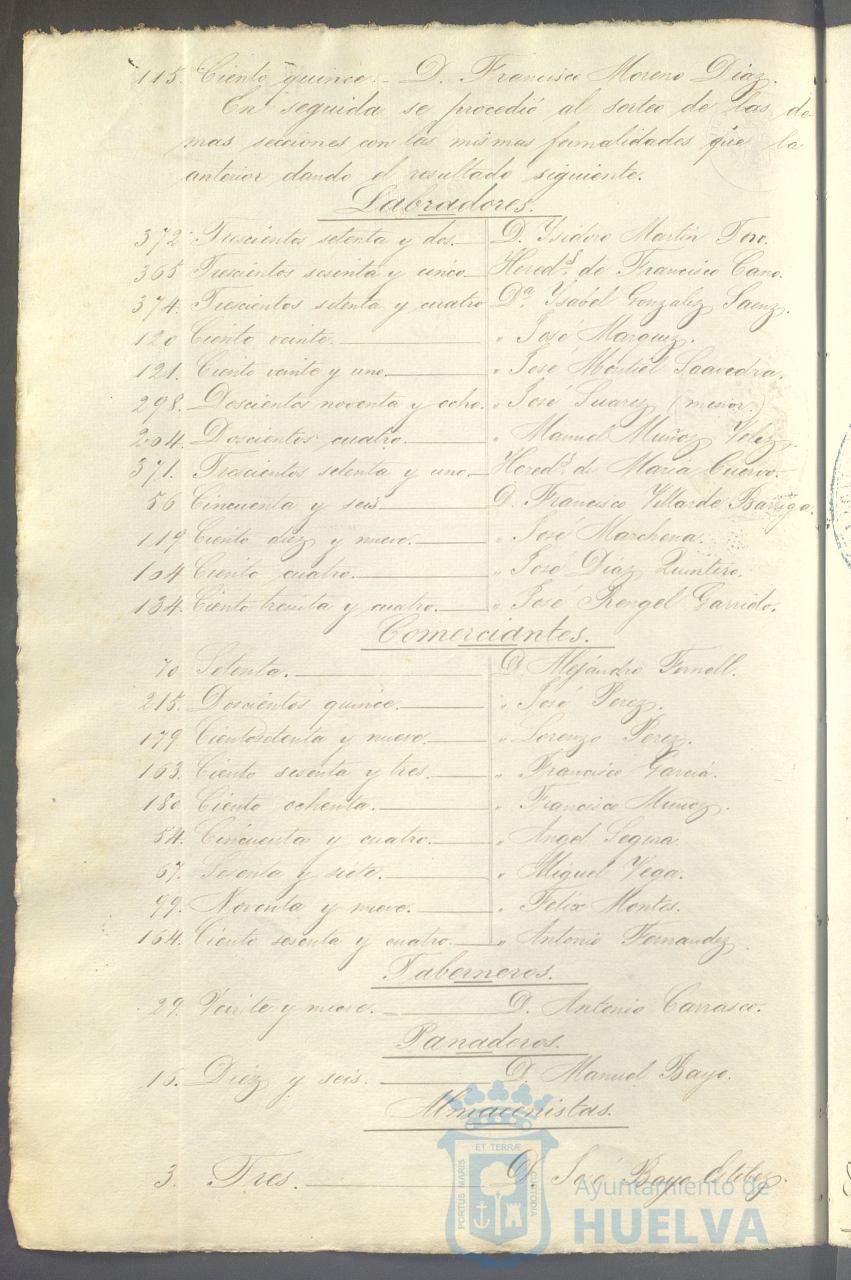 115. Ciento quince. - D. Francisco Moreno Diaz.
En seguida se procedió al sorteo de las de
mas secciones con las mismas formalidades que la
anterior dando el resultado siguiente.
Labradores.
372 Trescientos setenta y dos. D. Ysidoro Martin Toro.
365 Trescientos sesenta y cinco Hered.s de Francisco Cano.
374. Trescientos setenta y cuatro D.a Ysabel Gonzalez Saenz.
120 Ciento veinte. " José Marquez.
121. Ciento veinte y uno " José Montiel Saavedra.
298. Doscientos noventa y ocho. " José Suarez (menor)
204. Doscientos cuatro. " Manuel Muñoz Velez.
371. Trescientos setenta y uno Hered.s de Maria Cuervo.
56 Cincuenta y seis D. Francisco Villarde Barriga.
119 Ciento diez y nueve. " José Marchena.
104 Ciento cuatro. " José Diaz Quintero.
134. Ciento treinta y cuatro. " José Rengel Garrido.
Comerciantes.
70 Setenta. D. Alejandro Fornell.
215. Doscientos quince. " José Perez.
179 Ciento setenta y nueve. " Lorenzo Perez.
163. Ciento sesenta y tres. " Francisco Garcia.
180 Ciento ochenta. " Francisco Muñoz.
54. Cincuenta y cuatro. " Angel Segura
67. Sesenta y siete. " Miguel Vega.
99. Noventa y nueve. " Felix Montes.
164. Ciento sesenta y cuatro. " Antonio Fernandez.
Taberneros.
29. Veinte y nueve. D. Antonio Carrasco.
Panaderos.
16. Diez y seis. D. Manuel Bayo.
Almacenistas.
3. Tres. D. José Bayo
PORTUS MARIS ET TERRÆ CUSTODIA
Ayuntamiento de
HUELVA